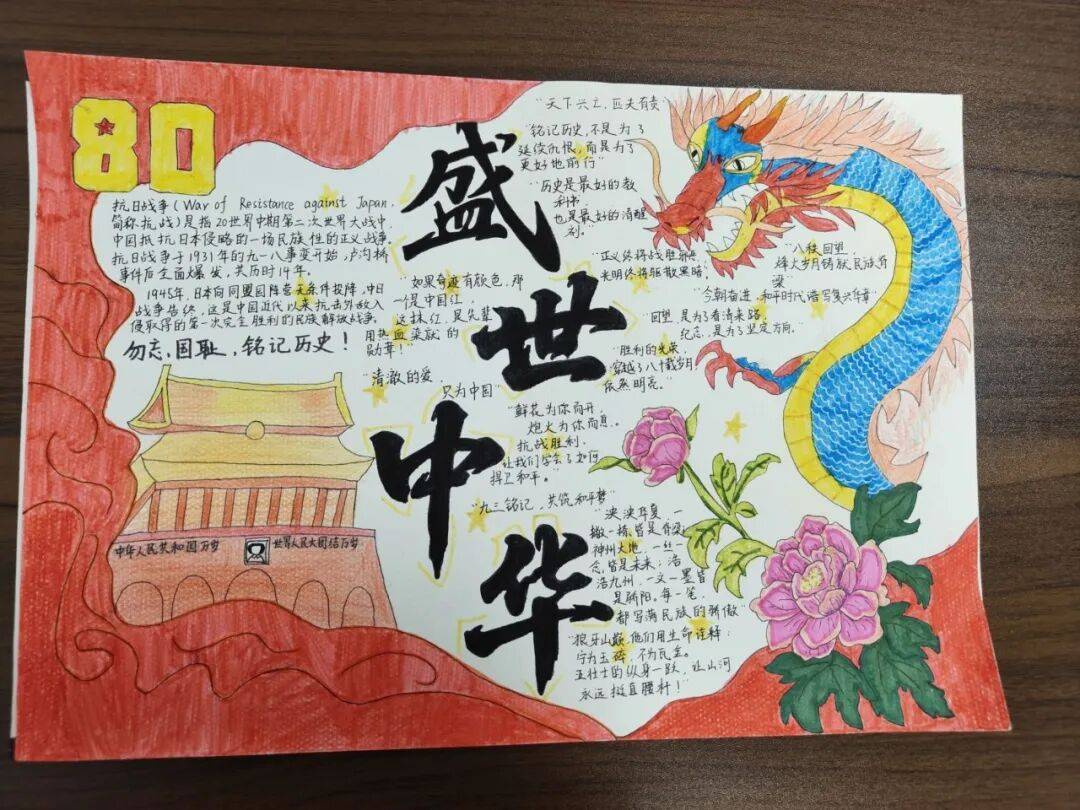 80
抗日战争(War of Resistance against Japan,
简称抗战)是指20世界中期第二次世界大战中,
中国抵抗日本侵略的一场民族性的正义战争。
抗日战争于1931年的九一八事变开始,卢沟桥
事件后全面爆发,共历时14年。
1945年,日本向同盟国阵营无条件投降,中日
战争告终,这是中国近代以来抗击外敌入
侵取得的第一次完全胜利的民族解放战争。
勿忘国耻,铭记历史!
中华人民共和国万岁
世界人民大团结万岁
盛
世
中
华
"天下兴亡,匹夫有责"
"铭记历史,不是为了
延续仇恨,而是为了
更好地前行"
"历史是最好的教
科书,
也是最好的清醒
剂。"
"正义终将战胜邪恶
光明终将驱散黑暗"
"八秩回望,
烽火岁月铸就民族脊
梁
今朝奋进,和平时代谱写复兴华章"
"回望,是为了看清来路,
纪念,是为了坚定方向。"
"如果奇迹有颜色,那
一定是中国红,
这抹红,是先辈
用热血染就的
勋章!"
"胜利的光荣
穿越了八十载岁月
依然明亮。"
"清澈的爱,
只为中国"
"鲜花为你而开,
炮火为你而息。
抗战胜利,
让我们学会了如何
捍卫和平。"
"九三铭记,共筑和平梦"
"泱泱华夏,一
撇一捺皆是脊梁
神州大地,一丝一
念,皆是未来;浩
浩九州,一文一墨皆
是骄阳。每一笔,
都写满民族的骄傲
"狼牙山巅,他们用生命诠释:
宁为玉碎,不为瓦全。
五壮士的纵身一跃,让山河
永远挺直腰杆!"